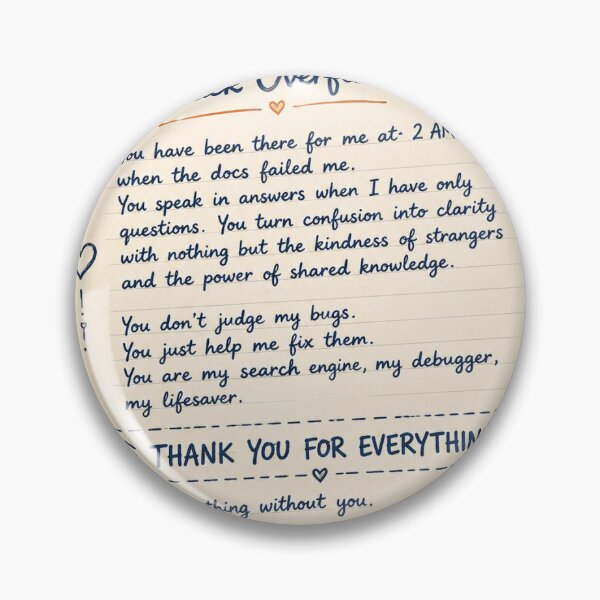 ck Overf
ou have been there for me at- 2 AM
when the docs failed me.
You speak in answers when I have only
questions. You turn confusion into clarity
with nothing but the kindness of strangers
and the power of shared knowledge.
You don't judge my bugs.
You just help me fix them.
You are my search engine, my debugger,
my lifesaver.
THANK YOU FOR EVERYTHIN
thing without you.